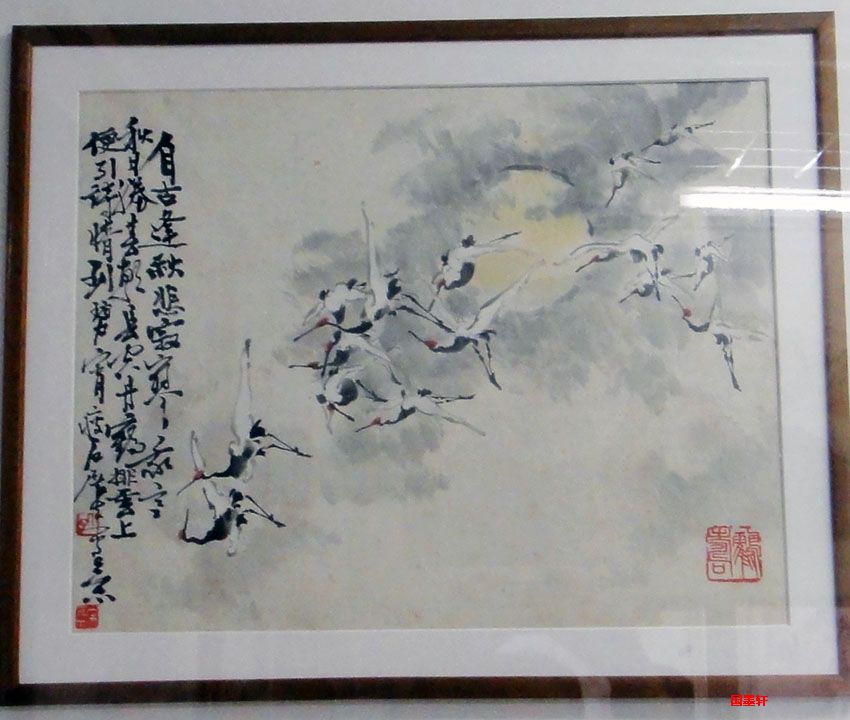 自古逢秋悲寂寥我言
秋日勝春朝長空丹鶴排雲上
便引詩情到碧霄
国墨轩